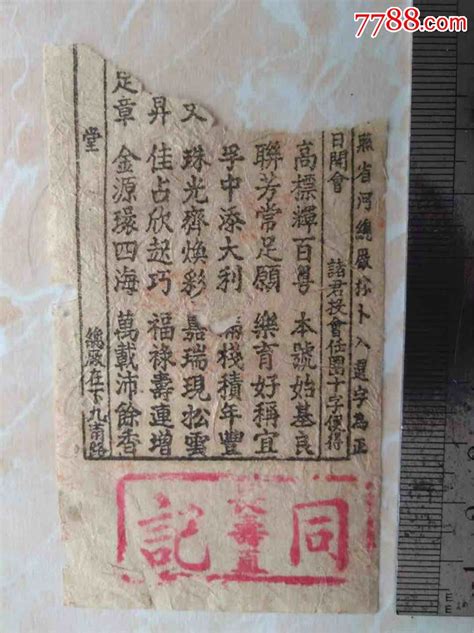 7788.com
燕省河總廠採卜入選字為正
日開會
諸君投會任圈十字便得
高標輝百粵 本號始基良
聯芳常足願 樂育好稱宜
孚中添大利 積年豐
珠光齊煥彩 嘉瑞現松雲
昇 佳占欣起巧 福祿壽連增
定章 金源環四海 萬載沛餘香
堂
總廠在下九甫路
同記